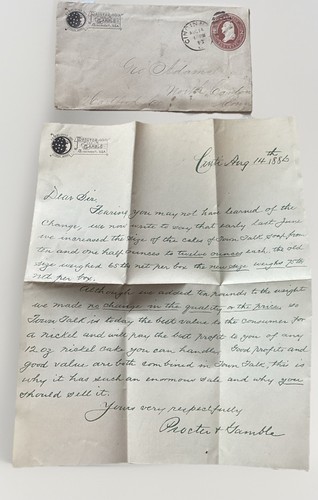 Procter
& Gamble
Cincinnati, USA.
CINCINNATI
Geo
North
Procter
& Gamble
Cincinnati, USA.
Cinti, Aug 14th 1886
Dear Sir,
Fearing you may not have learned of the
Change, we now write to say that early last June
we increased the size of the cakes of Town Talk soap from
ten and one half ounces to twelve ounces each, the old
size weighed 65 lbs net per box the new size weighs 75 lbs
net per box.
Although we added ten pounds to the weight
we made no change in the quality or the price, so
Town Talk is today the best value to the Consumer for
a nickel and will pay the best profit to you of any
12 oz nickel cake you can handle. Good profit and
good value are both combined in Town Talk, this is
why it has such an enormous sale and why you
should sell it.
Yours very respectfully
Procter & Gamble